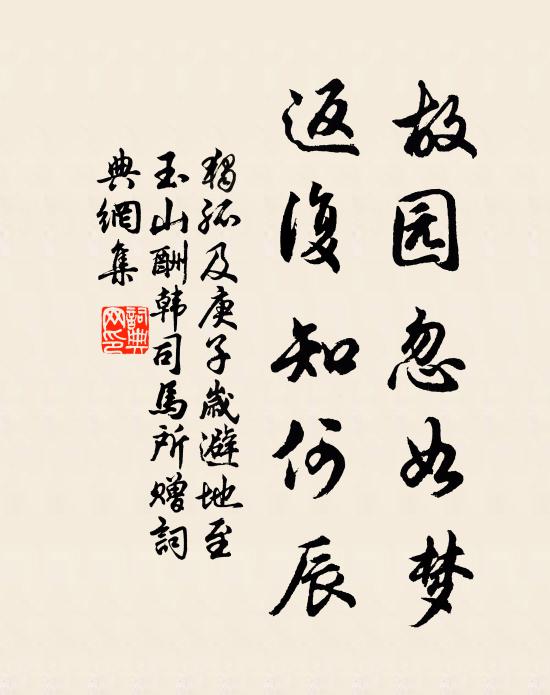 故园忽如梦
返復知何辰
獨孤及庚子歲避地至
玉山酬韩司馬所赠詞
典網集
詞典
网印